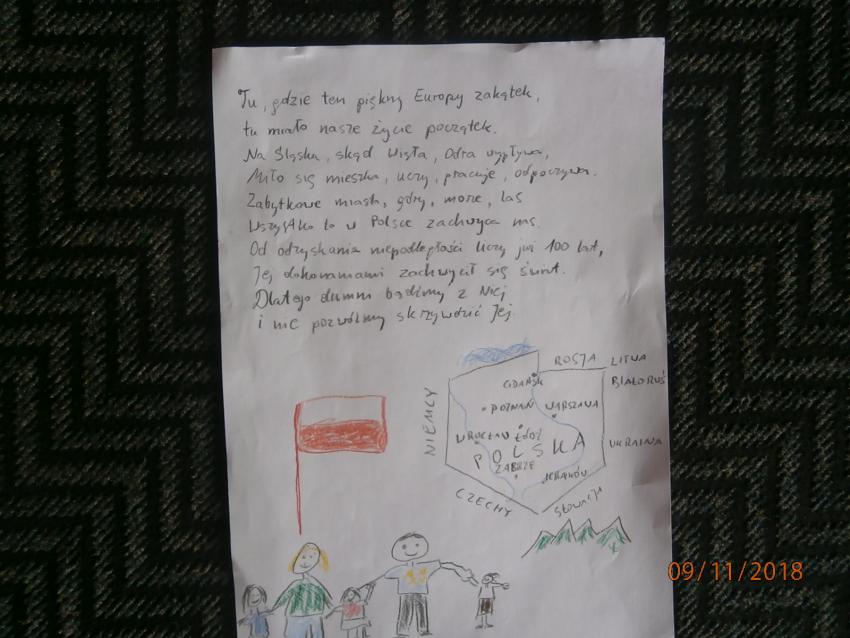 Tu, gdzie ten piękny Europy zakątek,
tu miało nasze życie początek.
Na Śląsku, skąd Wisła, Odra wypływa,
Miło się mieszka, uczy, pracuje, odpoczywa.
Zabytkowe miasta, góry, morze, las
Wszystko to w Polsce zachwyca nas.
Od odzyskania niepodległości liczy już 100 lat,
Jej dokonaniami zachwycił się świat.
Dlatego dumni bądźmy z Niej
i nie pozwólmy skrzywdzić Jej.
ROSJA LITWA
BIAŁORUŚ
GDAŃSK
NIEMCY
POZNAŃ WARSZAWA
WROCŁAW ŁÓDŹ
UKRAINA
POLSKA
ZABRZE
KRAKÓW
CZECHY
Słowacja
09/11/2018